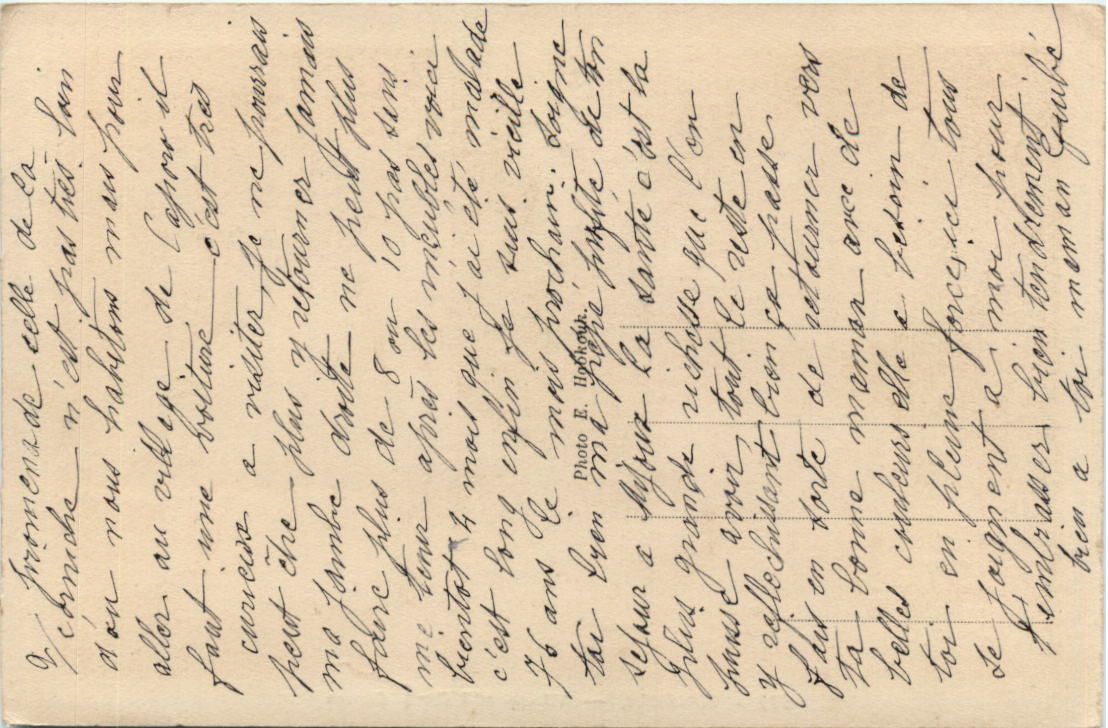 2/ promenade celle de la
Cornuche n'est pas très loin
d'ou nous habitons mais pour
aller au village de Lapons il
faut une voiture c'est très
curieux a visiter, je ne pourrais
peut être plus y retourner jamais
ma jambe droite ne peut plus
faire plus de 8 ou 10 pas sans
me tenir après les meubles voici
bientot 4 mois que j'ai été malade
c'est long enfin je suis vieille
76 ans le mois prochain. soigne
toi bien ma profite de ton
sejour a Mjouz la santé c'est la
plus grande richesse que l'on
puisse avoir tout le reste en
y reflechissant bien ça passe
fais en sorte de retourner vers
ta bonne maman avec de
belles couleurs elle a besoin de
toi en pleine forces. ici tous
se joignent a moi pour
t'embrasser bien tendrement
bien a toi maman
Photo E.